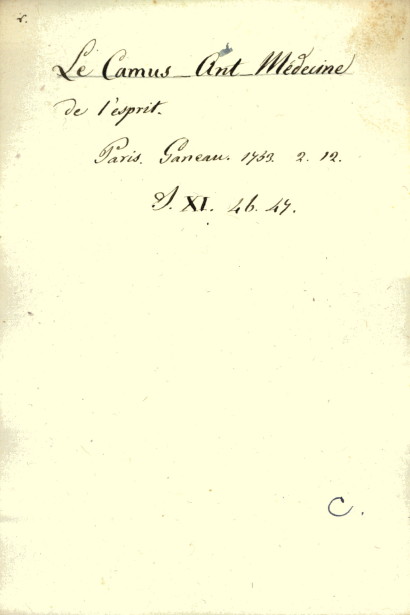 r.
Le Camus Ant Médecine
de l'esprit.
Paris. Ganeau. 1753. 2. 12.
S. XI. 46. 47.
C.